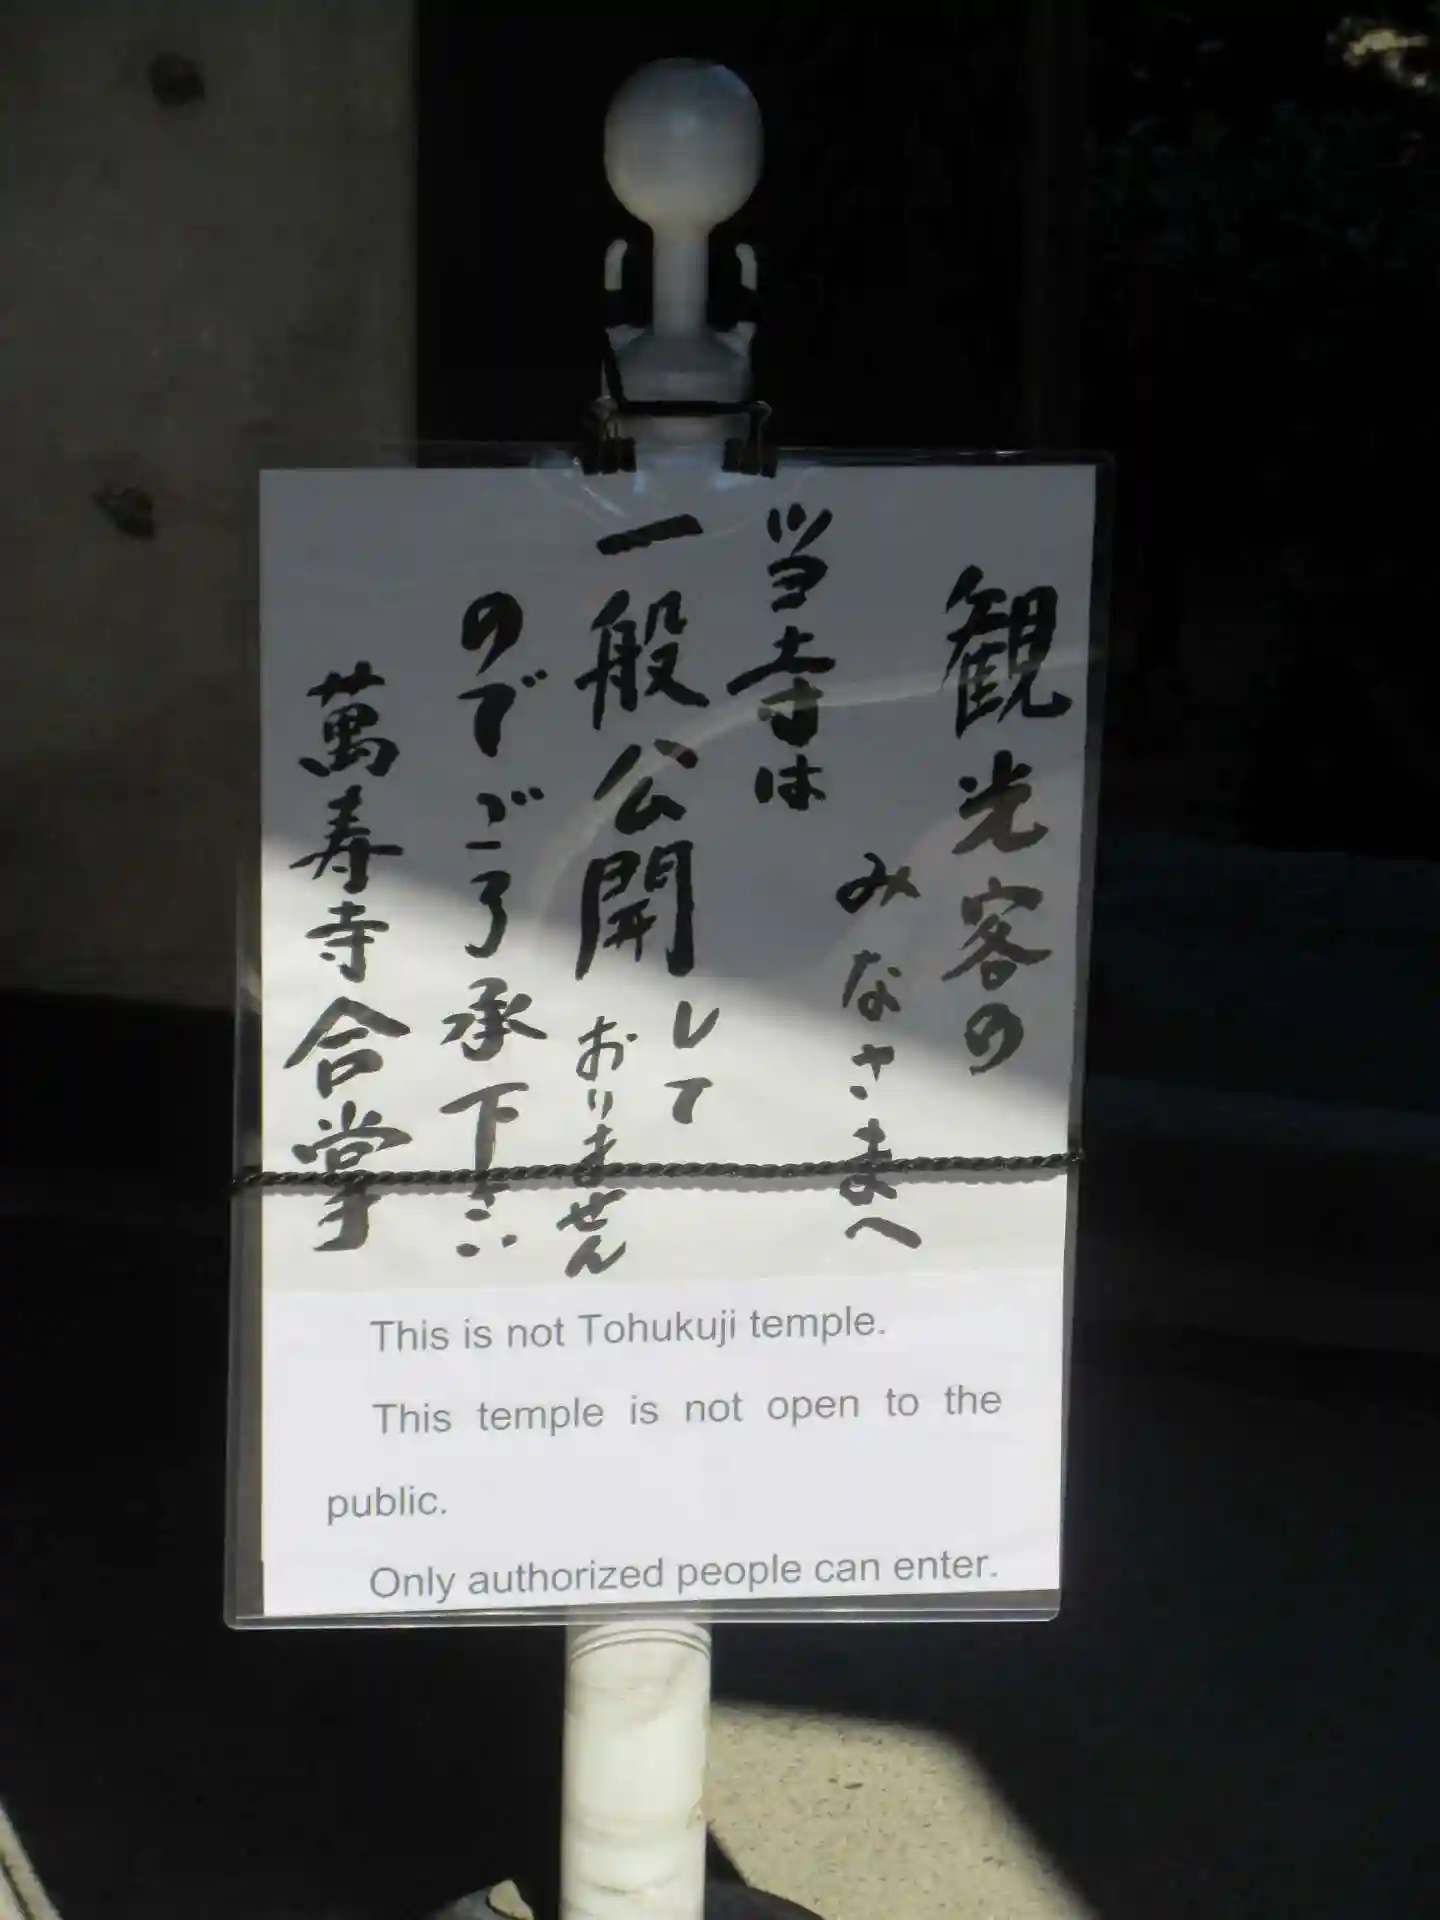 観光客の
みなさまへ
当寺は
一般公開して
おりません
のでご了承下さい
萬寿寺合掌
This is not Tohukuji temple.
This temple is not open to the
public.
Only authorized people can enter.